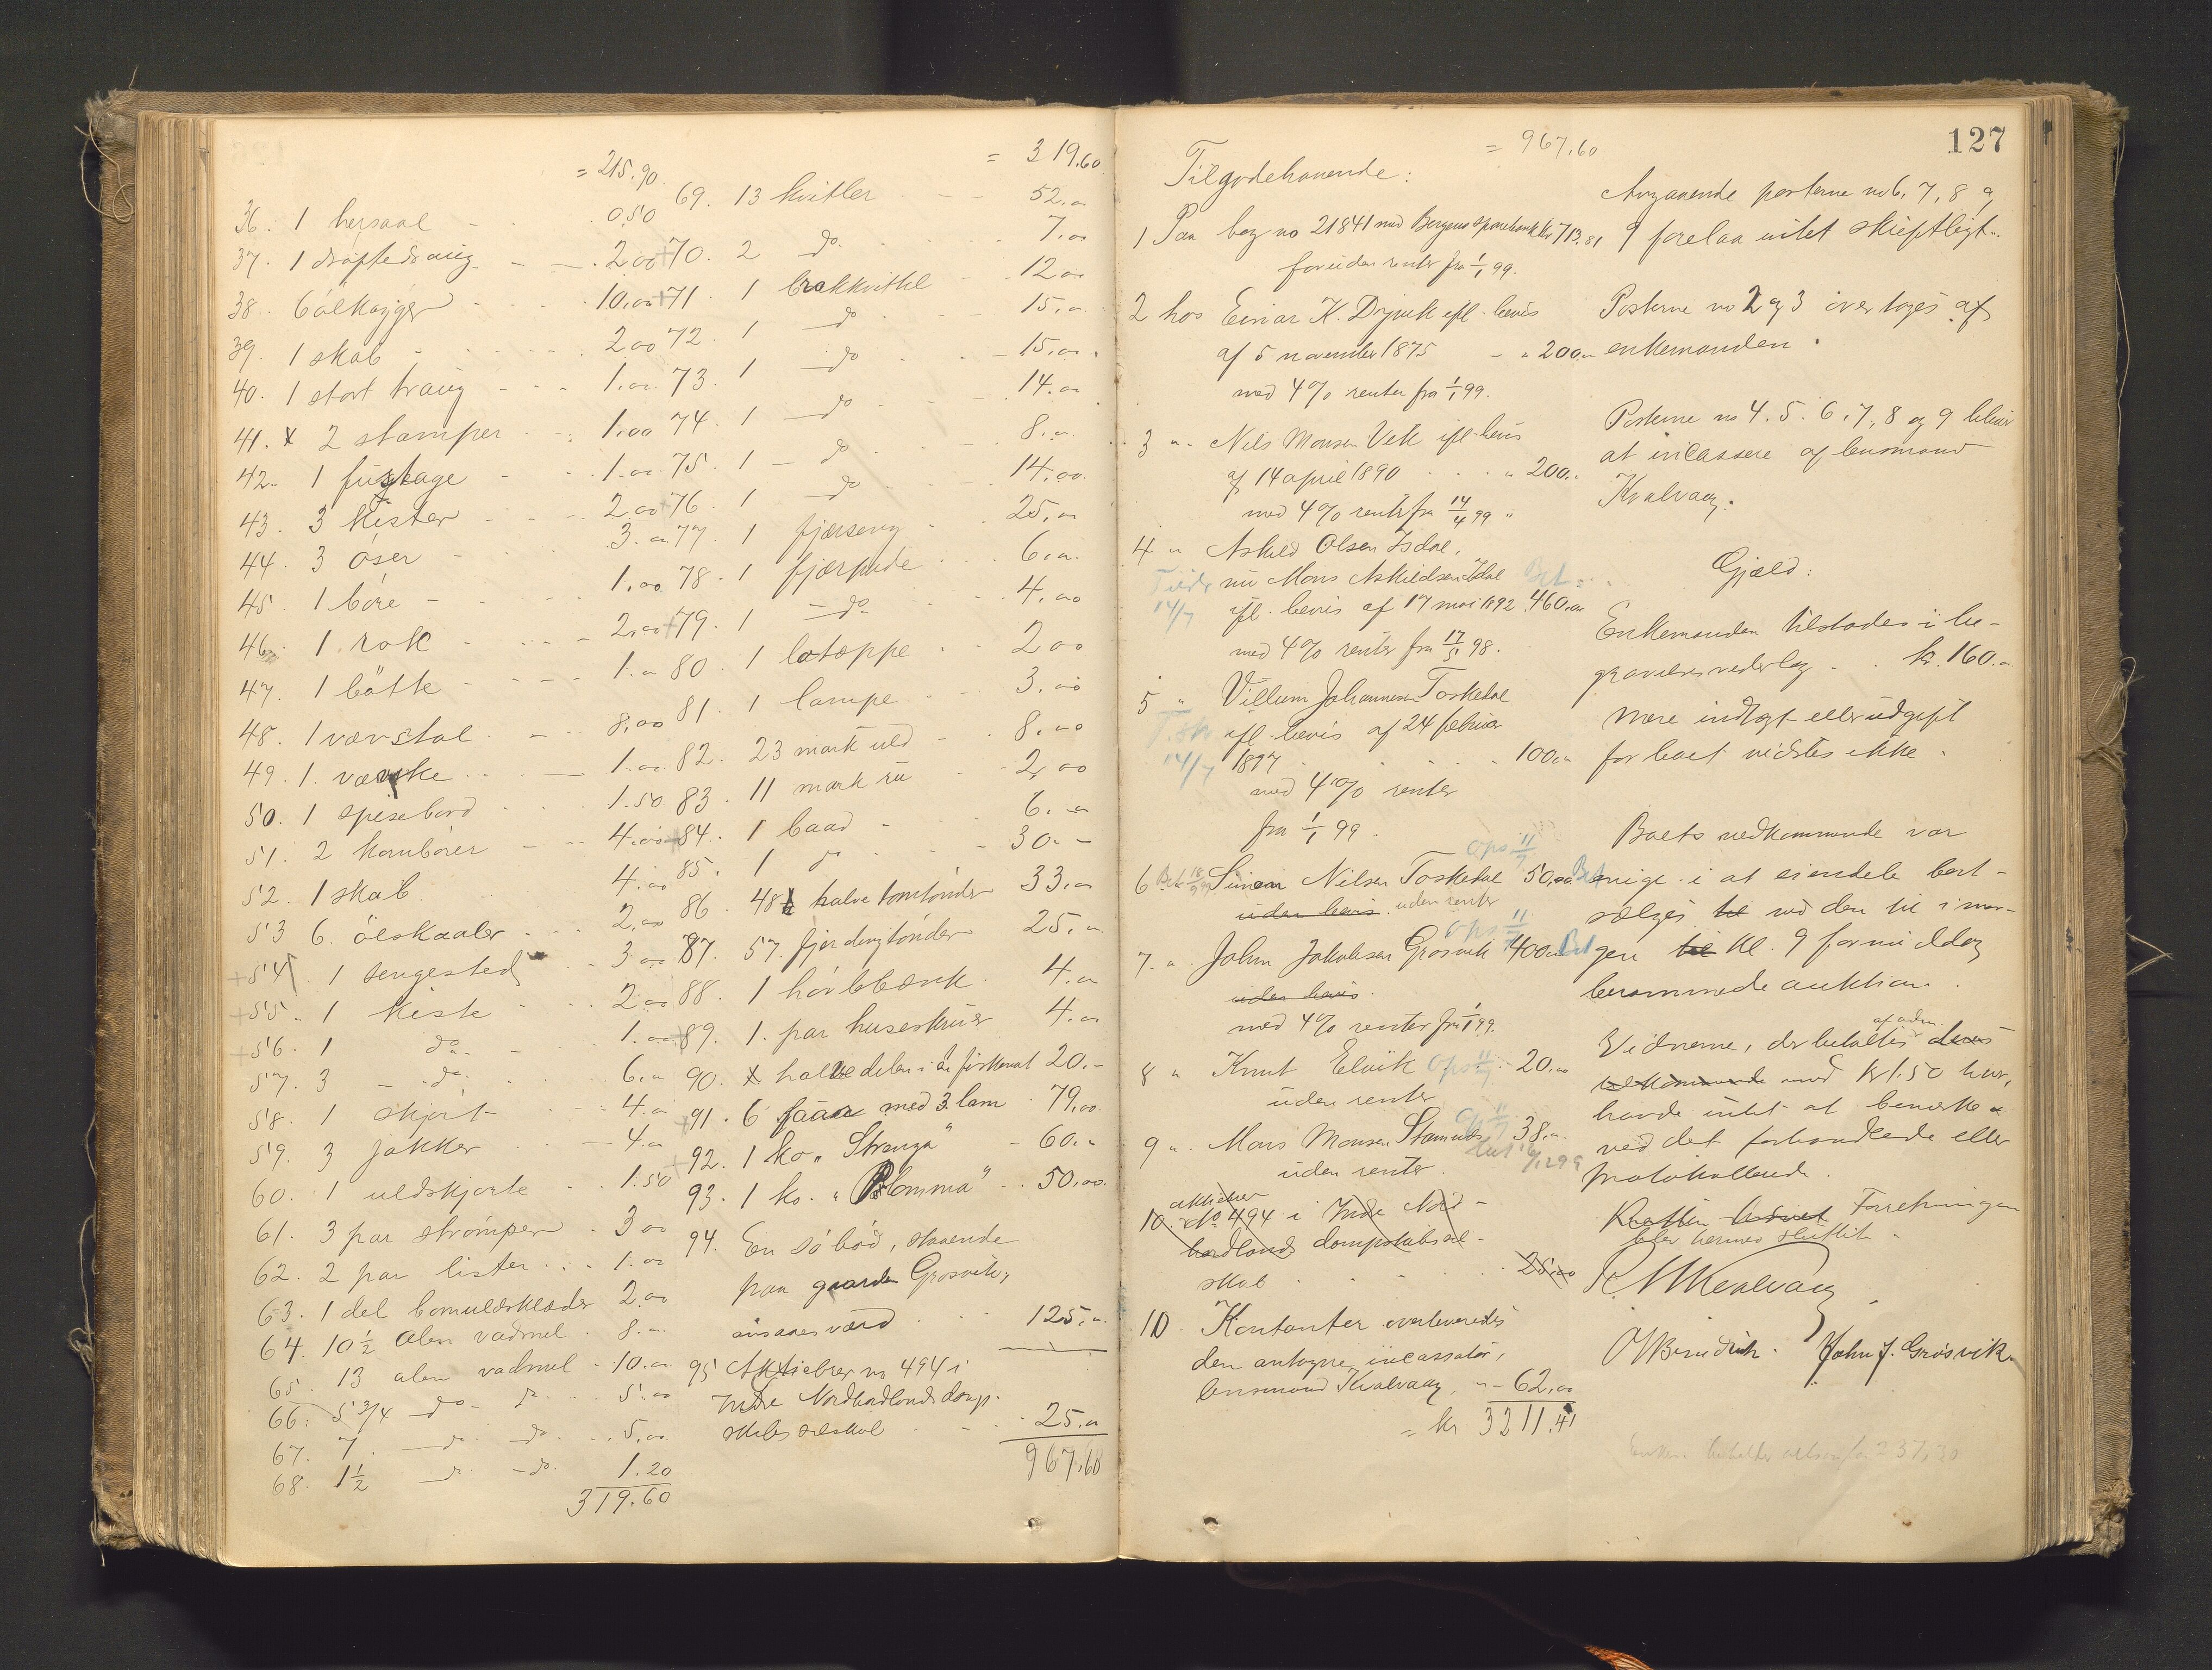 = 215.90
36. 1 hersaal - - 0.50
37. 1 - - 2.00
38. 6 ölkagger - - 10.00
39. 1 skab - - 2.00
40. 1 stort traug - - 1.00
41. x 2 stamper - - 1.00
42. 1 fustage - - 1.00
43. 3 kister - - 2.00
44. 3 öser - - 3.00
45. 1 böre - - 1.00
46. 1 rok - - 2.00
47. 1 bötte - - 1.00
48. 1 vævstol - - 8.00
49. 1 - - 1.00
50. 1 spisebord - - 1.50
51. 2 kornbörer - - 4.00
52. 1 skab - - 4.00
53 6. ölskaaler - - 2.00
+54 1 sengested - - 3.00
+55. 1 kiste - - 2.00
+56. 1 do. - - 1.00
57. 3 - do. - - 6.00
58. 1 skjört - - 4.00
59. 3 jakker - - 4.00
60. 1 uldskjorte - 1.50
61. 3 par strömper - 3.00
62. 2 par lister - - 1.00
63. 1 del bomuldsklæder 2.00
64. 10 1/2 alen vadmel - 8.00
65. 13 alen vadmel - 10.00
66. 5 3/4 do - do - - 5.00
67. 7. do. do. - - 5.00
68. 1 1/2 do - do. 1.20
319.60
= 319.60
69. 13 kvitler - - 52.00
+70. 2 do. - - 7.00
+71. 1 brakkvittel - 12.00
72. 1 do - - 15.00
73. 1 do - - 15.00
74. 1 do - - 14.00
75. 1 - do - - 8.00
76. 1 do - - 14.00
77. 1 fjærseng - - 25.00
78. 1 fjærpude - - 6.00
+79. 1 do - - 4.00
80. 1 - - 2.00
81. 1 lampe - - 3.00
82. 23 mark uld - 8.00
83. 11 mark - - 2.00
+84. 1 baad - - 6.00
85. 1 do - - 30.-
86. 48 halve tomtönder 33.00
87. 57 fjerdingtönder 25.00
88. 1 hövlebænk - 4.00
+89. 1. par huseskruer 4.00
90. x halvedelen i en 20.-
+91. 6 faar med 3 lam - 79.00
+92. 1 ko „Stranga" - 60.00
93. 1 ko. „Blomma" - 50.00
94. En söbod, staaende
paa gaarden Grosvik,
ansaaes værd - - 125.00
95 Aktiebrev no 494 i
Indre Nordhordlands damp-
skibsselskab - - 25.00
967.60
127
= 967.60
Tilgodehavende:
1 Paa bog no 21841 med Bergens sparebank kr. 713.81
foruden renter fra 1/1 99.
2 hos Einar K. Dyvik ifl. bevis
af 5 november 1875 - „ 200.00
med 4% renter fra 1/1 99.
3 „ - Nils Monsen Vek ifl. bevis
af 14 april 1890 - - „ 200.00
med 4% rente fra 14/4 99
4 „ Askild Olsen Isdal,
nu Mons Askildsen Isdal
ifl. bevis af 17 mai 1892 460.00
14/7
med 4% renter fra 17/5 98.
5 „ Villum Johannesen Toskedal
ifl. bevis af 24 februar
14/7
1897 - - - 100.00
med 4% renter
fra 1/1 99.
Ops 11/7
6 Simon Nilsen Toskedal 50.00 Bet
uden bevis. uden renter
Ops 11/7
7. „ John Jakobsen Grosvik 400.00 Bet
uden bevis.
med 4% renter fra 1/1 99.
8 „ Knut Elvik Ops 11/7 20.00
uden renter
9 „ Mons Monsen Stamnes 38.00
uden renter.
aktiebrev
10. No 494 i Indre Nord-
hordlands dampskibssel-
skab - - - 25.00
10. Kontanter overleveredes
den antagne incassator,
lensmand Kvalvaag, „ - 62.00
= kr 3211.41
Angaaende posterne no 6, 7, 8 og
9 forelaa intet skriftligt.
Posterne no 2 og 3 overtoges af
enkemanden.
Posterne no 4. 5. 6. 7, 8 og 9 bliver
at incassere af lensmand
Kvalvaag.
Gjæld:
Enkemanden tilstodes i be-
gravelsesvederlag - - kr. 160.00
Mere indtægt eller udgift
for boet vidstes ikke.
Boets vedkommende var
enige i at eiendele bort-
sælges til ved den til i mor-
gen til kl. 9 formiddag
berammede auktion.
af adm.
Vidnerne, der betaltes deres
vedkommende med kr 1.50 hver,
havde intet at bemærke
ved det forhandlede eller
protokollerede.
Retten hævet Forretningen
blev hermed sluttet.
Kvalvaag
John J. Grosvik